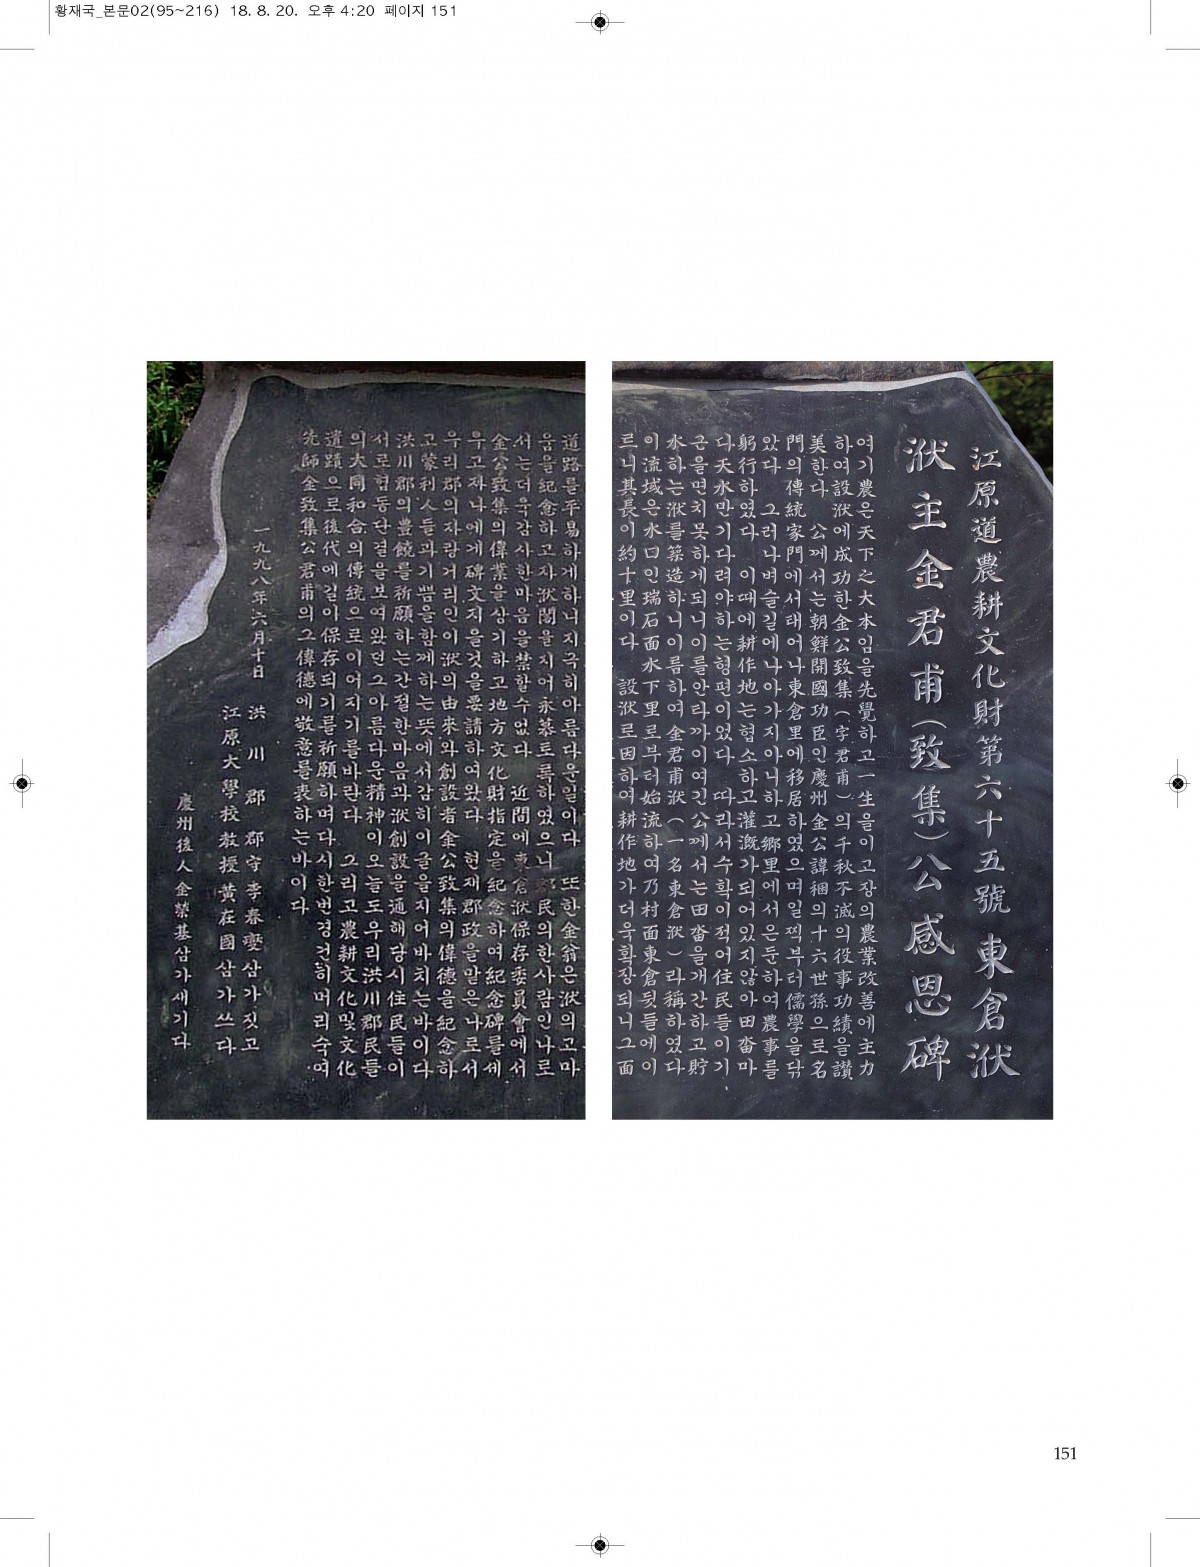 황재국_본문02(95~216) 18. 8. 20. 오후 4:20 페이지 151
江原道農耕文化財第六十五號 東倉洑
洑主金君甫(致集)公感恩碑
여기農은天下之大本임을先覺하고一生을이고장의農業改善에主力
하여設洑에成功한金公致集(字君甫)의千秋不滅의役事功績을讚
美한다 公께서는朝鮮開國功臣인慶州金公諱稇의十六世孫으로名
門의傳統家門에서태어나東倉里에移居하였으며일찍부터儒學을닦
았다 그러나벼슬길에나아가지아니하고鄕里에서은둔하여農事를
躬行하였다 이때에耕作地는협소하고灌漑가되어있지않아田畓마
다天水만기다려야하는형편이었다 따라서수확이적어住民들이기
근을면치못하게되니이를안타까이여긴公께서는田畓을개간하고貯
水하는洑를築造하니이름하여金君甫洑(一名東倉洑)라稱하였다
이流域은水口인瑞石面水下里로부터始流하여乃村面東倉뒷들에이
르니其長이約十里이다 設洑로因하여耕作地가더욱확장되니그面
道路를平易하게하니지극히아름다운일이다 또한金翁은洑의고마
움을紀念하고자洑閣을지어永慕토록하였으니 民의한사람인나로
서는더욱감사한마음을禁할수없다 近間에東倉洑保存委員會에서
金公致集의偉業을상기하고地方文化財指定을紀念하여紀念碑를세
우고자나에게碑文지을것을要請하여왔다 현재郡政을맡은나로서
우리郡의자랑거리인이洑의由來와創設者金公致集의偉德을紀念하
고蒙利人들과기쁨을함께하는뜻에서감히이글을지어바치는바이다
洪川郡의豊饒를祈願하는간절한마음과洑創設을通해당시住民들이
서로협동단결을보여왔던그아름다운精神이오늘도우리洪川郡民들
의大同和合의傳統으로이어지기를바란다 그리고農耕文化및文化
遺蹟으로後代에길이保存되기를祈願하며다시한번경건히머리숙여
先師金致集公君甫의그偉德에敬意를表하는바이다
一九九八年六月十日
洪川郡 郡守李春燮삼가짓고
江原大學校敎授黃在國삼가쓰다
慶州後人金榮基삼가새기다
151